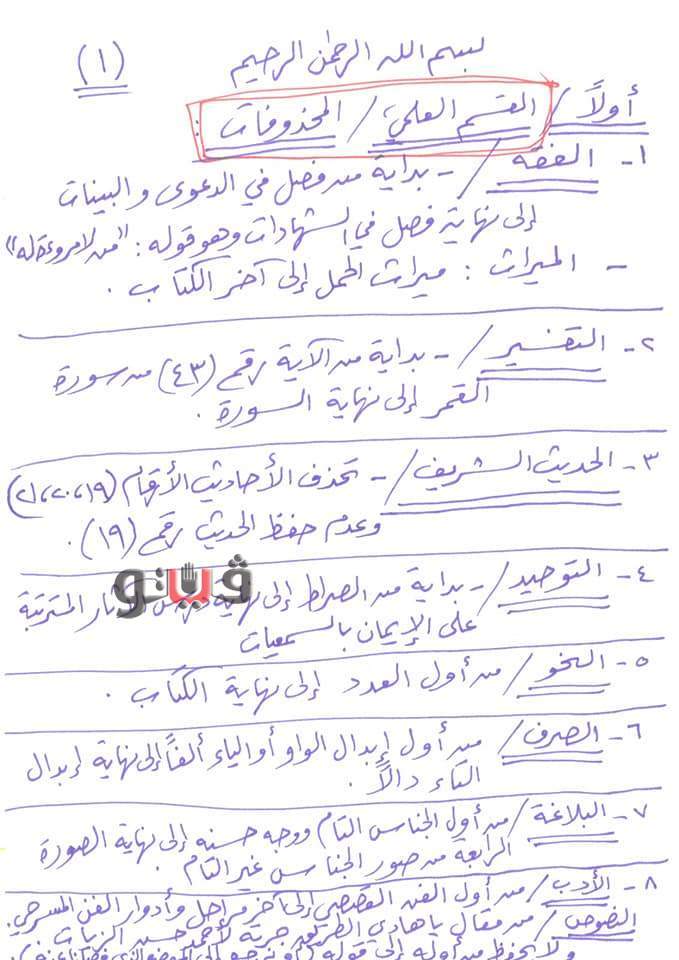 (١)
بسم الله الرحمن الرحيم
أولاً / القسم العلمي / المحذوفات :
١- الفقه / - بداية من فصل في الدعوى والبينات
إلى نهاية فصل في الشهادات وهو قوله : "من لا مروءة له"
- الميراث : ميراث الحمل إلى آخر الكتاب .
٢- التفسير / - بداية من الآية رقم (٤٣) من سورة
القمر إلى نهاية السورة .
٣- الحديث الشريف / - تحذف الأحاديث الأرقام (١٩، ٢٠، ٢١)
وعدم حفظ الحديث رقم (١٩) .
ڤيتو
٤- التوحيد / - بداية من الصراط إلى نهاية الآثار المترتبة
على الإيمان بالسمعيات
٥- النحو / من أول العدد إلى نهاية الكتاب .
٦- الصرف / من أول إبدال الواو أو الياء ألفاً إلى نهاية إبدال
التاء دالاً .
٧- البلاغة / من أول الجناس التام ووجه حسنه إلى نهاية الصورة
الرابعة من صور الجناس غير التام .
٨- الأدب / من أول الفن القصصي إلى آخر مراحل وأدوار الفن المسرحي .
النصوص / من مقال يا هادي الطريق جرت لأحمد حسن الزيات
ولا يحفظ من أوله إلى قوله